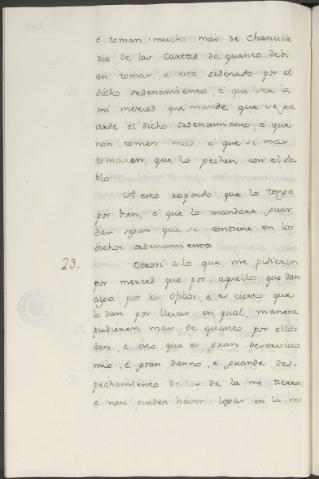 é toman mucho mas de Chancille
ria de las Cartas de quanto debi
an tomar, é está ordenado por el
dicho ordenamiento, é que sea la
mi merced que mande que se gu
arde el dicho ordenamiento, é que
non tomen mas, é que si mas
tomaren, que lo pechen con el do
blo
A esto respondo que lo tengo
por bien, é que lo mandaré guar
dar segun que se contiene en los
dichos ordenamientos
23. Otrosi á lo que me pidieron
por merced que por aquellos que dan
algo por los oficios, é es cierto que
lo dan por llevar en qual manera
pudieren mas de quanto por ellos
den, é esto que es gran deservicio
mio, é gran danno, é grande des
pechamiento de los de la mi tierra;
é non pueden haver logar en la mi